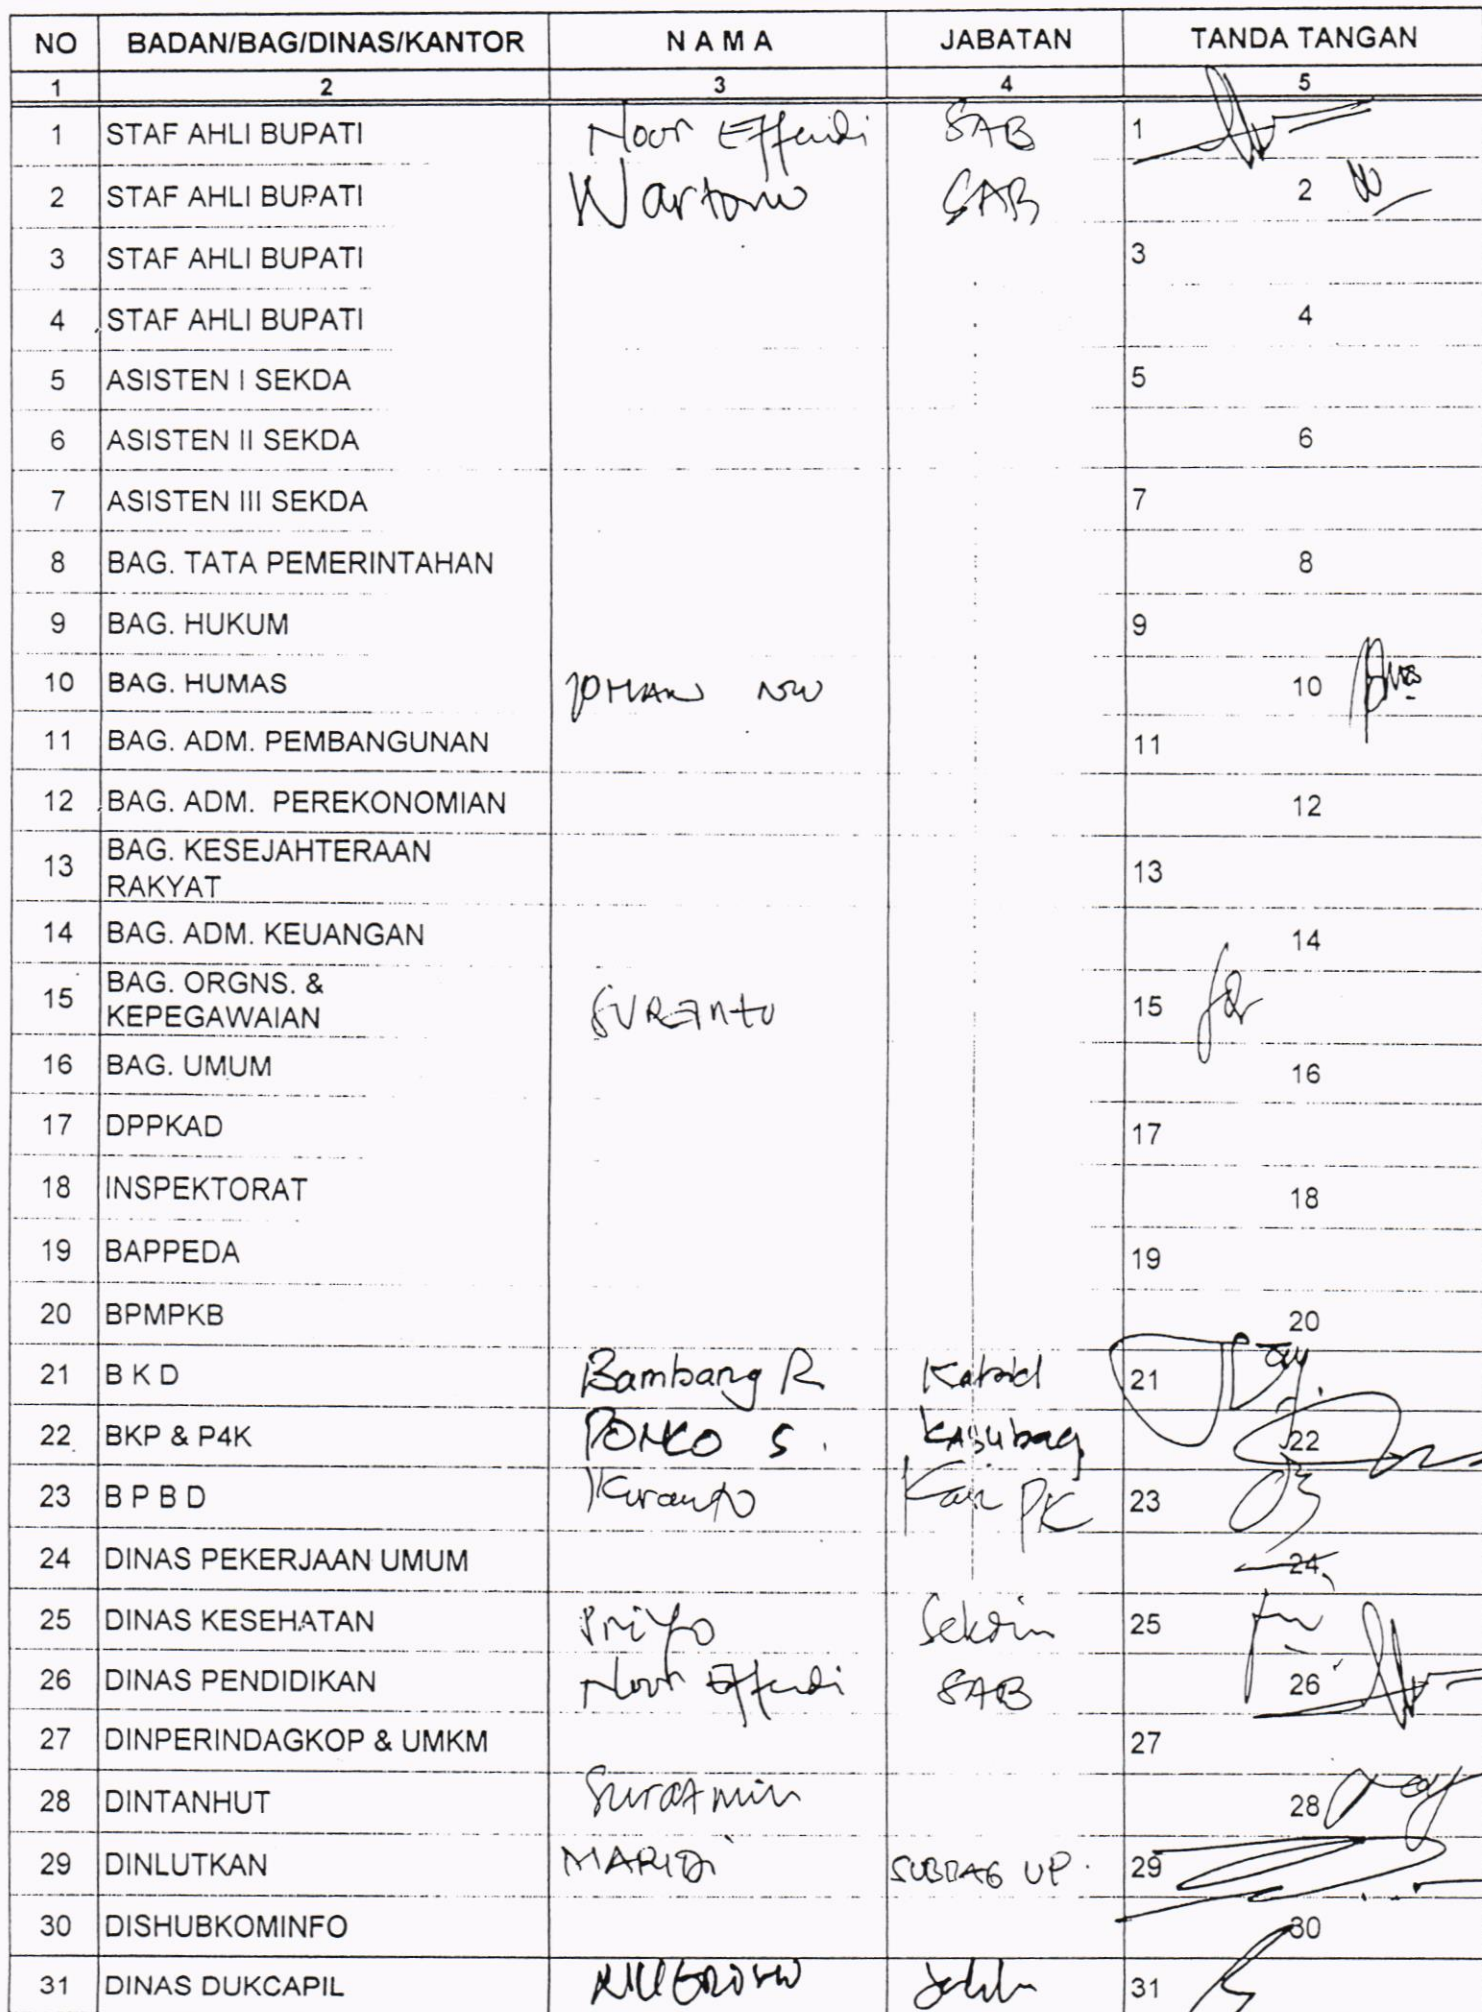 NO BADAN/BAG/DINAS/KANTOR N A M A JABATAN TANDA TANGAN
1 2 3 4 5
1 STAF AHLI BUPATI Noor Effendi SAB 1
2 STAF AHLI BUPATI Wartono SAB 2
3 STAF AHLI BUPATI 3
4 STAF AHLI BUPATI 4
5 ASISTEN I SEKDA 5
6 ASISTEN II SEKDA 6
7 ASISTEN III SEKDA 7
8 BAG. TATA PEMERINTAHAN 8
9 BAG. HUKUM 9
10 BAG. HUMAS 10
11 BAG. ADM. PEMBANGUNAN 11
12 BAG. ADM. PEREKONOMIAN 12
13 BAG. KESEJAHTERAAN
RAKYAT 13
14 BAG. ADM. KEUANGAN 14
15 BAG. ORGNS. &
KEPEGAWAIAN SURANTO 15
16 BAG. UMUM 16
17 DPPKAD 17
18 INSPEKTORAT 18
19 BAPPEDA 19
20 BPMPKB 20
21 B K D Bambang R Kabid 21
22 BKP & P4K PONCO S. Kasubag 22
23 B P B D PK 23
24 DINAS PEKERJAAN UMUM 24
25 DINAS KESEHATAN Priyo Sekdin 25
26 DINAS PENDIDIKAN Noor Effendi SAB 26
27 DINPERINDAGKOP & UMKM 27
28 DINTANHUT Suratmin 28
29 DINLUTKAN MARIDI SUBBAG UP. 29
30 DISHUBKOMINFO 30
31 DINAS DUKCAPIL 31